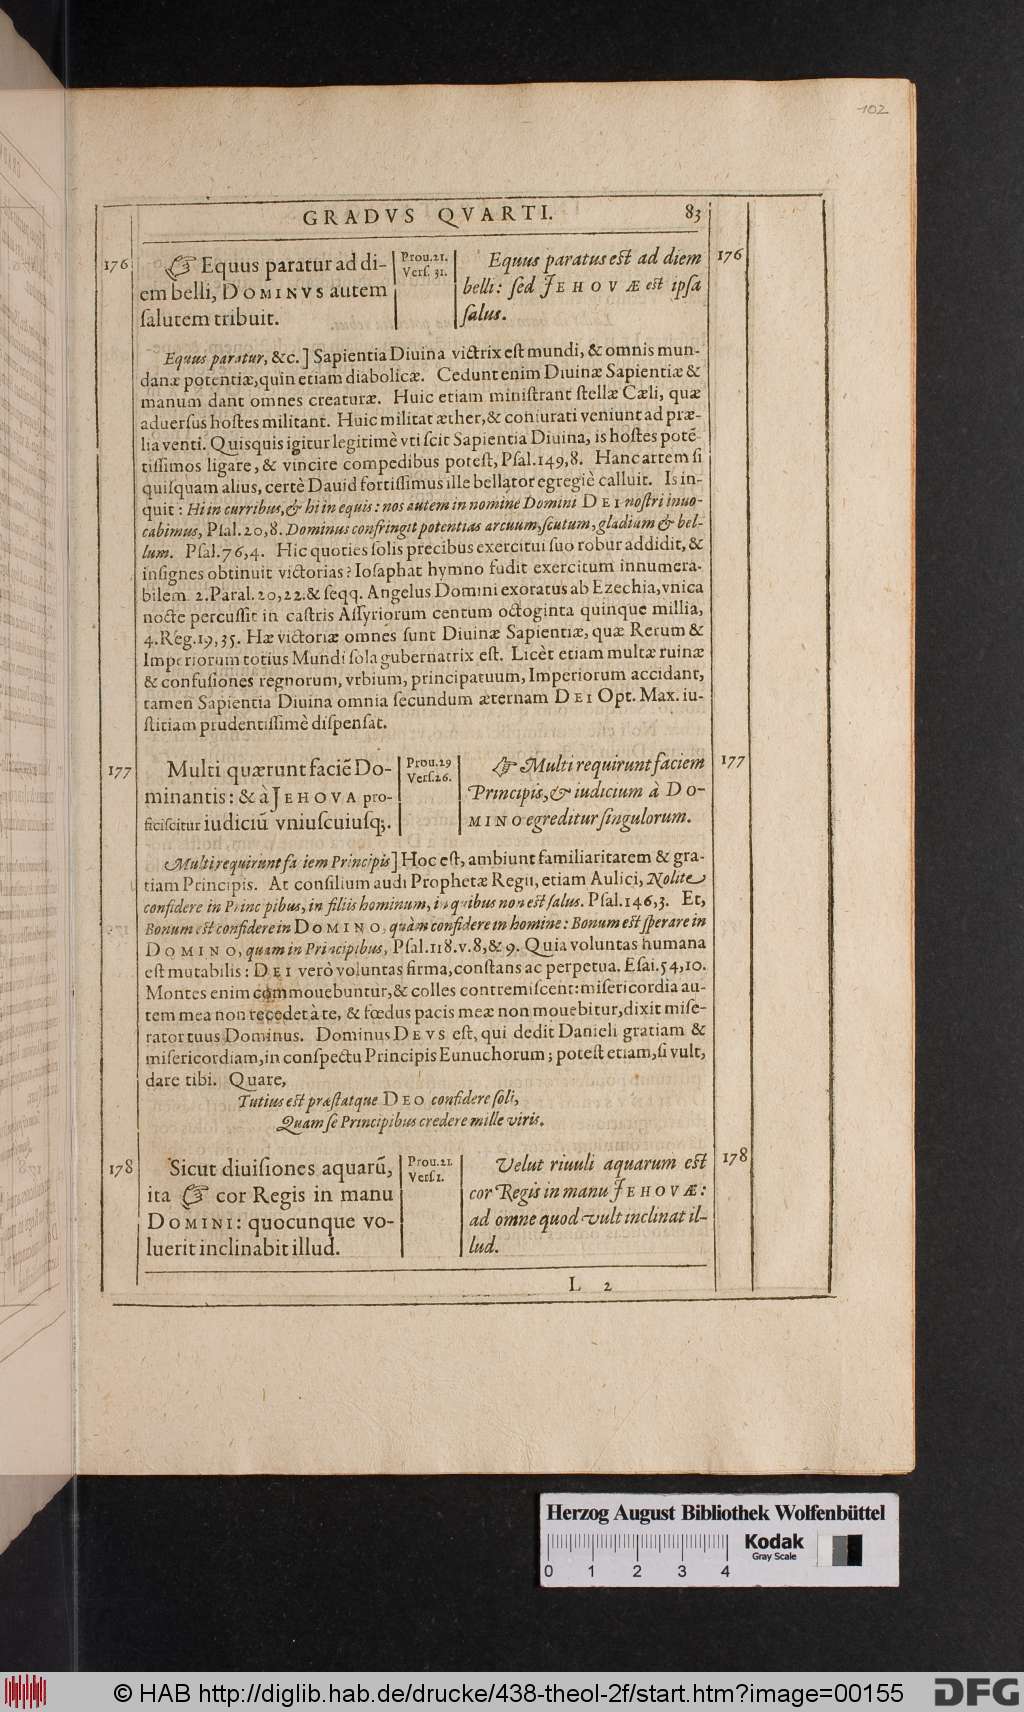 102
GRADVS QVARTI. 83
176
☞ Equus paratur ad di-
em belli, DOMINVS autem
ſalutem tribuit.
Prou.21.
Verſ. 31.
Equus paratus eſt ad diem
belli: ſed JEHOVÆ eſt ipſa
ſalus.
176
Equus paratur, &c.] Sapientia Diuina victrix eſt mundi, & omnis mun-
danæ potentiæ, quin etiam diabolicæ. Cedunt enim Diuinæ Sapientiæ &
manum dant omnes creaturæ. Huic etiam miniſtrant ſtellæ Cæli, quæ
aduerſus hoſtes militant. Huic militat æther, & coniurati veniunt ad præ-
lia venti. Quisquis igitur legitimè vti ſcit Sapientia Diuina, is hoſtes potẽ-
tiſſimos ligare, & vincire compedibus poteſt, Pſal.149,8. Hanc artem ſi
quiſquam alius, certè Dauid fortiſſimus ille bellator egregiè calluit. Is in-
quit: Hi in curribus, & hi in equis: nos autem in nomine Domini DEI noſtri inuo-
cabimus, Pſal.20,8. Dominus confringit potentias arcuum, ſcutum, gladium & bel-
lum. Pſal.76,4. Hic quoties ſolis precibus exercitui ſuo robur addidit, &
inſignes obtinuit victorias? Ioſaphat hymno fudit exercitum innumera-
bilem 2.Paral.20,22.& ſeqq. Angelus Domini exoratus ab Ezechia, vnica
nocte percuſſit in caſtris Aſſyriorum centum octoginta quinque millia,
4.Reg.19,35. Hæ victoriæ omnes ſunt Diuinæ Sapientiæ, quæ Rerum &
Imperiorum totius Mundi ſola gubernatrix eſt. Licèt etiam multæ ruinæ
& confuſiones regnorum, vrbium, principatuum, Imperiorum accidant,
tamen Sapientia Diuina omnia ſecundum æternam DEI Opt. Max. iu-
ſtitiam prudentiſſimè diſpenſat.
177
Multi quærunt faciẽ Do-
minantis: & à JEHOVA pro-
ficiſcitur iudiciũ vniuſcuiuſq;.
Prou.29
Verſ.26.
☞ Multi requirunt faciem
Principis, & iudicium à DO-
MINO egreditur ſingulorum.
177
Multi requirunt fa iem Principis] Hoc eſt, ambiunt familiaritatem & gra-
tiam Principis. At conſilium audi Prophetæ Regii, etiam Aulici, Nolite
confidere in Princ pibus, in filiis hominum, in quibus non eſt ſalus. Pſal.146,3. Et,
Bonum eſt confidere in DOMINO, quàm confidere in homine: Bonum eſt ſperare in
DOMINO, quam in Principibus, Pſal.118.v.8,& 9. Quia voluntas humana
eſt mutabilis: DEI verò voluntas firma, conſtans ac perpetua. Eſai.54,10.
Montes enim commouebuntur, & colles contremiſcent: miſericordia au-
tem mea non recedet à te, & fœdus pacis meæ non mouebitur, dixit miſe-
rator tuus Dominus. Dominus DEVS eſt, qui dedit Danieli gratiam &
miſericordiam, in conſpectu Principis Eunuchorum; poteſt etiam, ſi vult,
dare tibi. Quare,
Tutius eſt præſtatque DEO confidere ſoli,
Quam ſe Principibus credere mille viris.
178
Sicut diuiſiones aquarũ,
ita ☞ cor Regis in manu
DOMINI: quocunque vo-
luerit inclinabit illud.
Prou.21.
Verſ1.
Velut riuuli aquarum eſt
cor Regis in manu JEHOVÆ:
ad omne quod vult inclinat il-
lud.
178
L 2
Herzog August Bibliothek Wolfenbüttel
Kodak
Gray Scale
0 1 2 3 4
© HAB http://diglib.hab.de/drucke/438-theol-2f/start.htm?image=00155
DFG